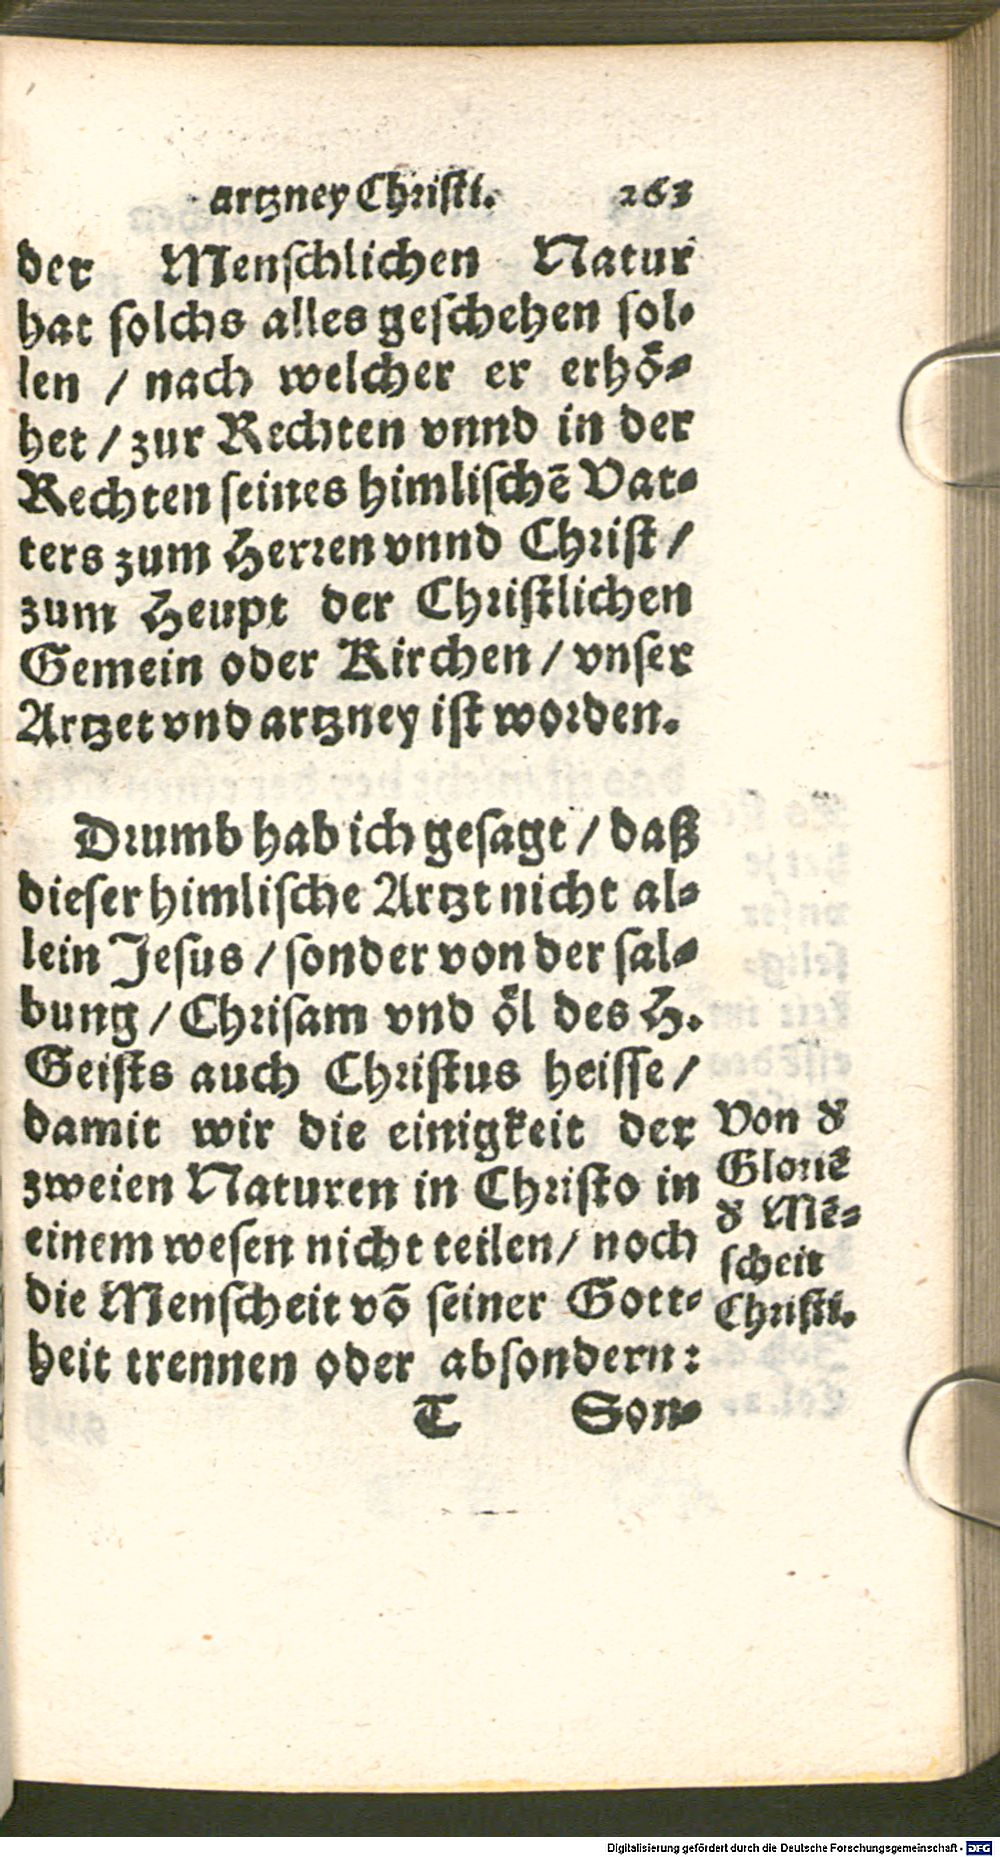 artzney Christi. 263
der Menschlichen Natur
hat solchs alles geschehen sol-
len / nach welcher er erhoͤ-
het / zur Rechten vnnd in der
Rechten seines himlischē Vat-
ters zum Herren vnnd Christ /
zum Heupt der Christlichen
Gemein oder Kirchen / vnser
Artzet vnd artzney ist worden.
Drumb hab ich gesagt / daß
dieser himlische Artzt nicht al-
lein Jesus / sonder von der sal-
bung / Chrisam vnd oͤl des H.
Geists auch Christus heisse /
damit wir die einigkeit der
zweien Naturen in Christo in
einem wesen nicht teilen / noch
die Menscheit võ seiner Gott-
heit trennen oder absondern:
T Son-
Von d'
Gloriē
d' Mē-
scheit
Christi.
Digitalisierung gefördert durch die Deutsche Forschungsgemeinschaft - DFG